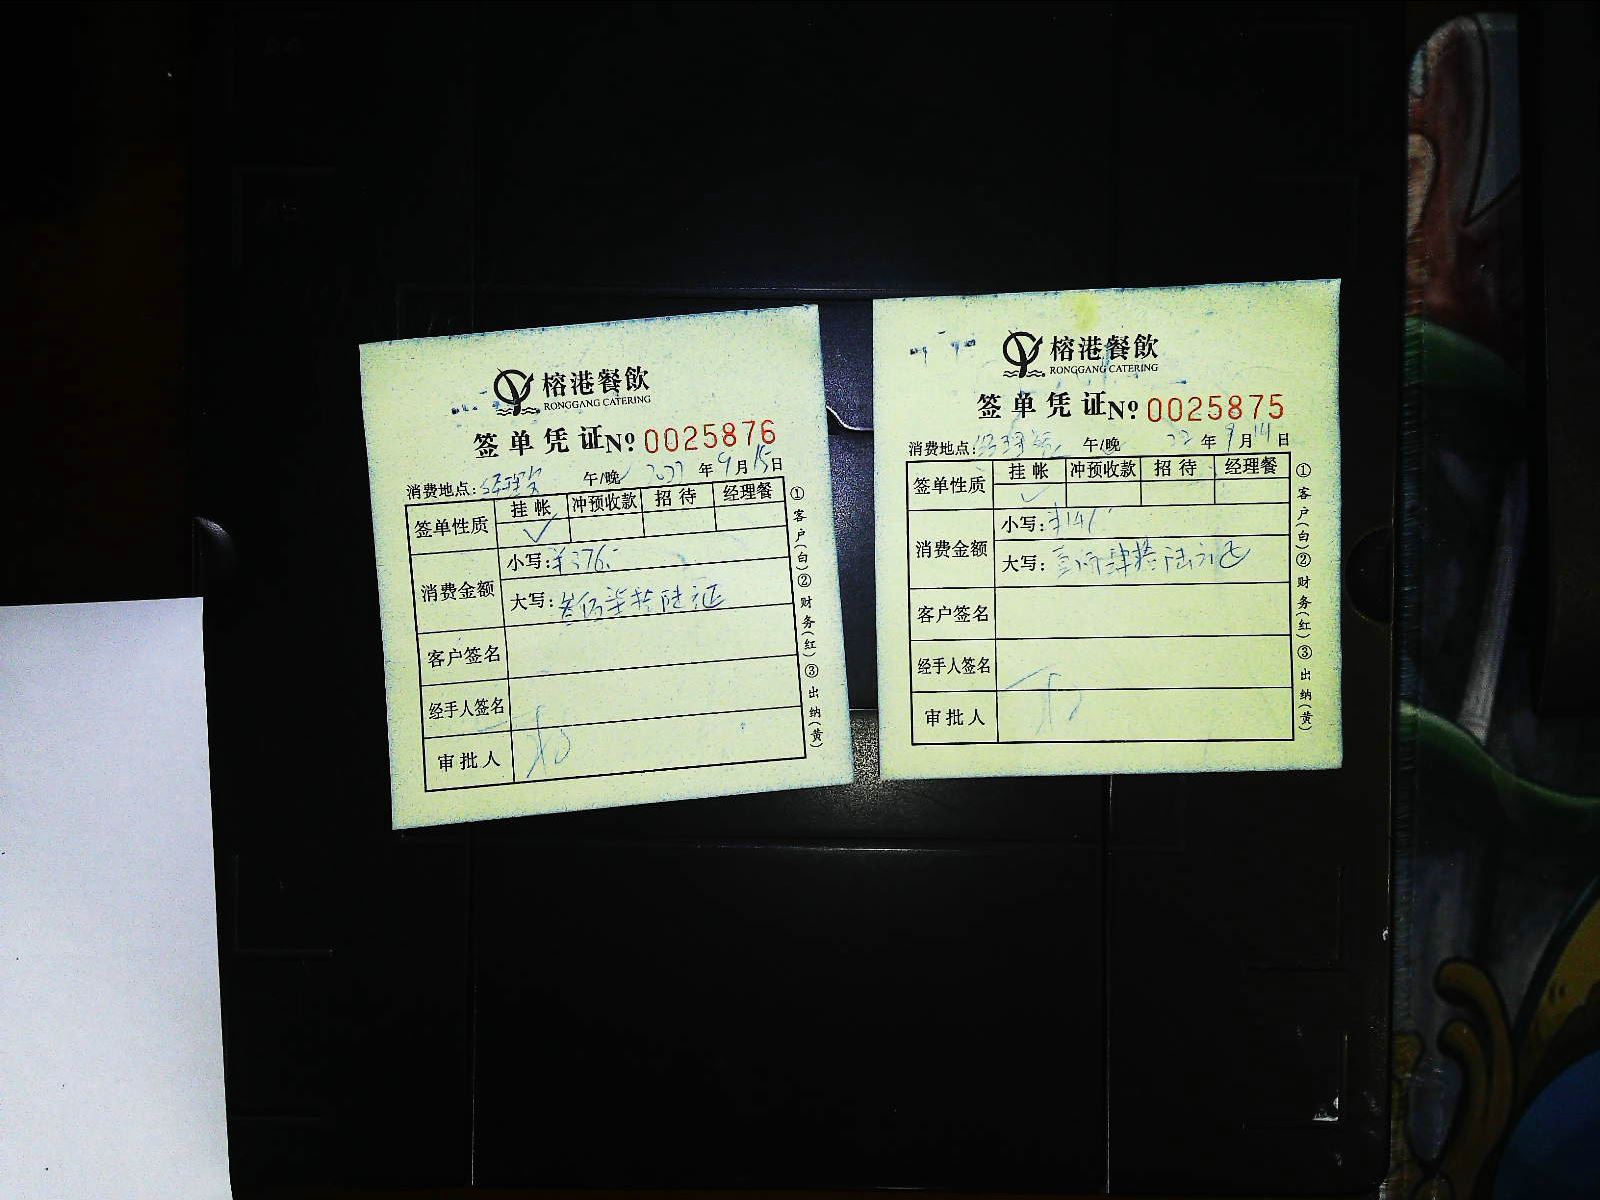 榕港餐飲
RONGGANG CATERING
签单凭证 № 0025876
消费地点: 午/晚 年 9 月 15 日
签单性质 挂帐 冲预收款 招待 经理餐
✓
消费金额 小写: ¥376.
大写: 叁佰柒拾陆
客户签名
经手人签名
审批人
①客户(白)②财务(红)③出纳(黄)
榕港餐飲
RONGGANG CATERING
签单凭证 № 0025875
消费地点: 午/晚 22 年 9 月 14 日
签单性质 挂帐 冲预收款 招待 经理餐
✓
消费金额 小写:
大写: 壹佰肆拾陆元
客户签名
经手人签名
审批人
①客户(白)②财务(红)③出纳(黄)